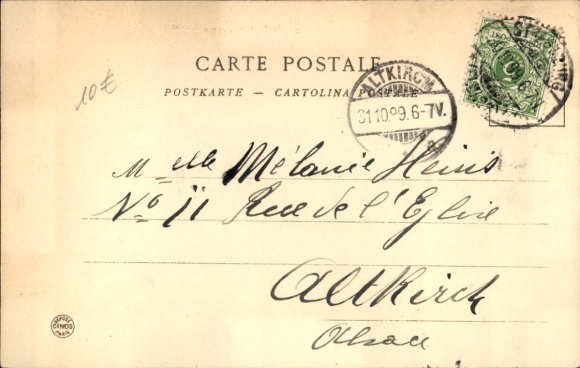 CARTE POSTALE
POSTKARTE — CARTOLINA POSTALE
10 €
ALTKIRCH
31 10.99. 6-7V.
Melle Mélanie Heins
No 11 Rue de l'Eglise
Altkirch
Alsace